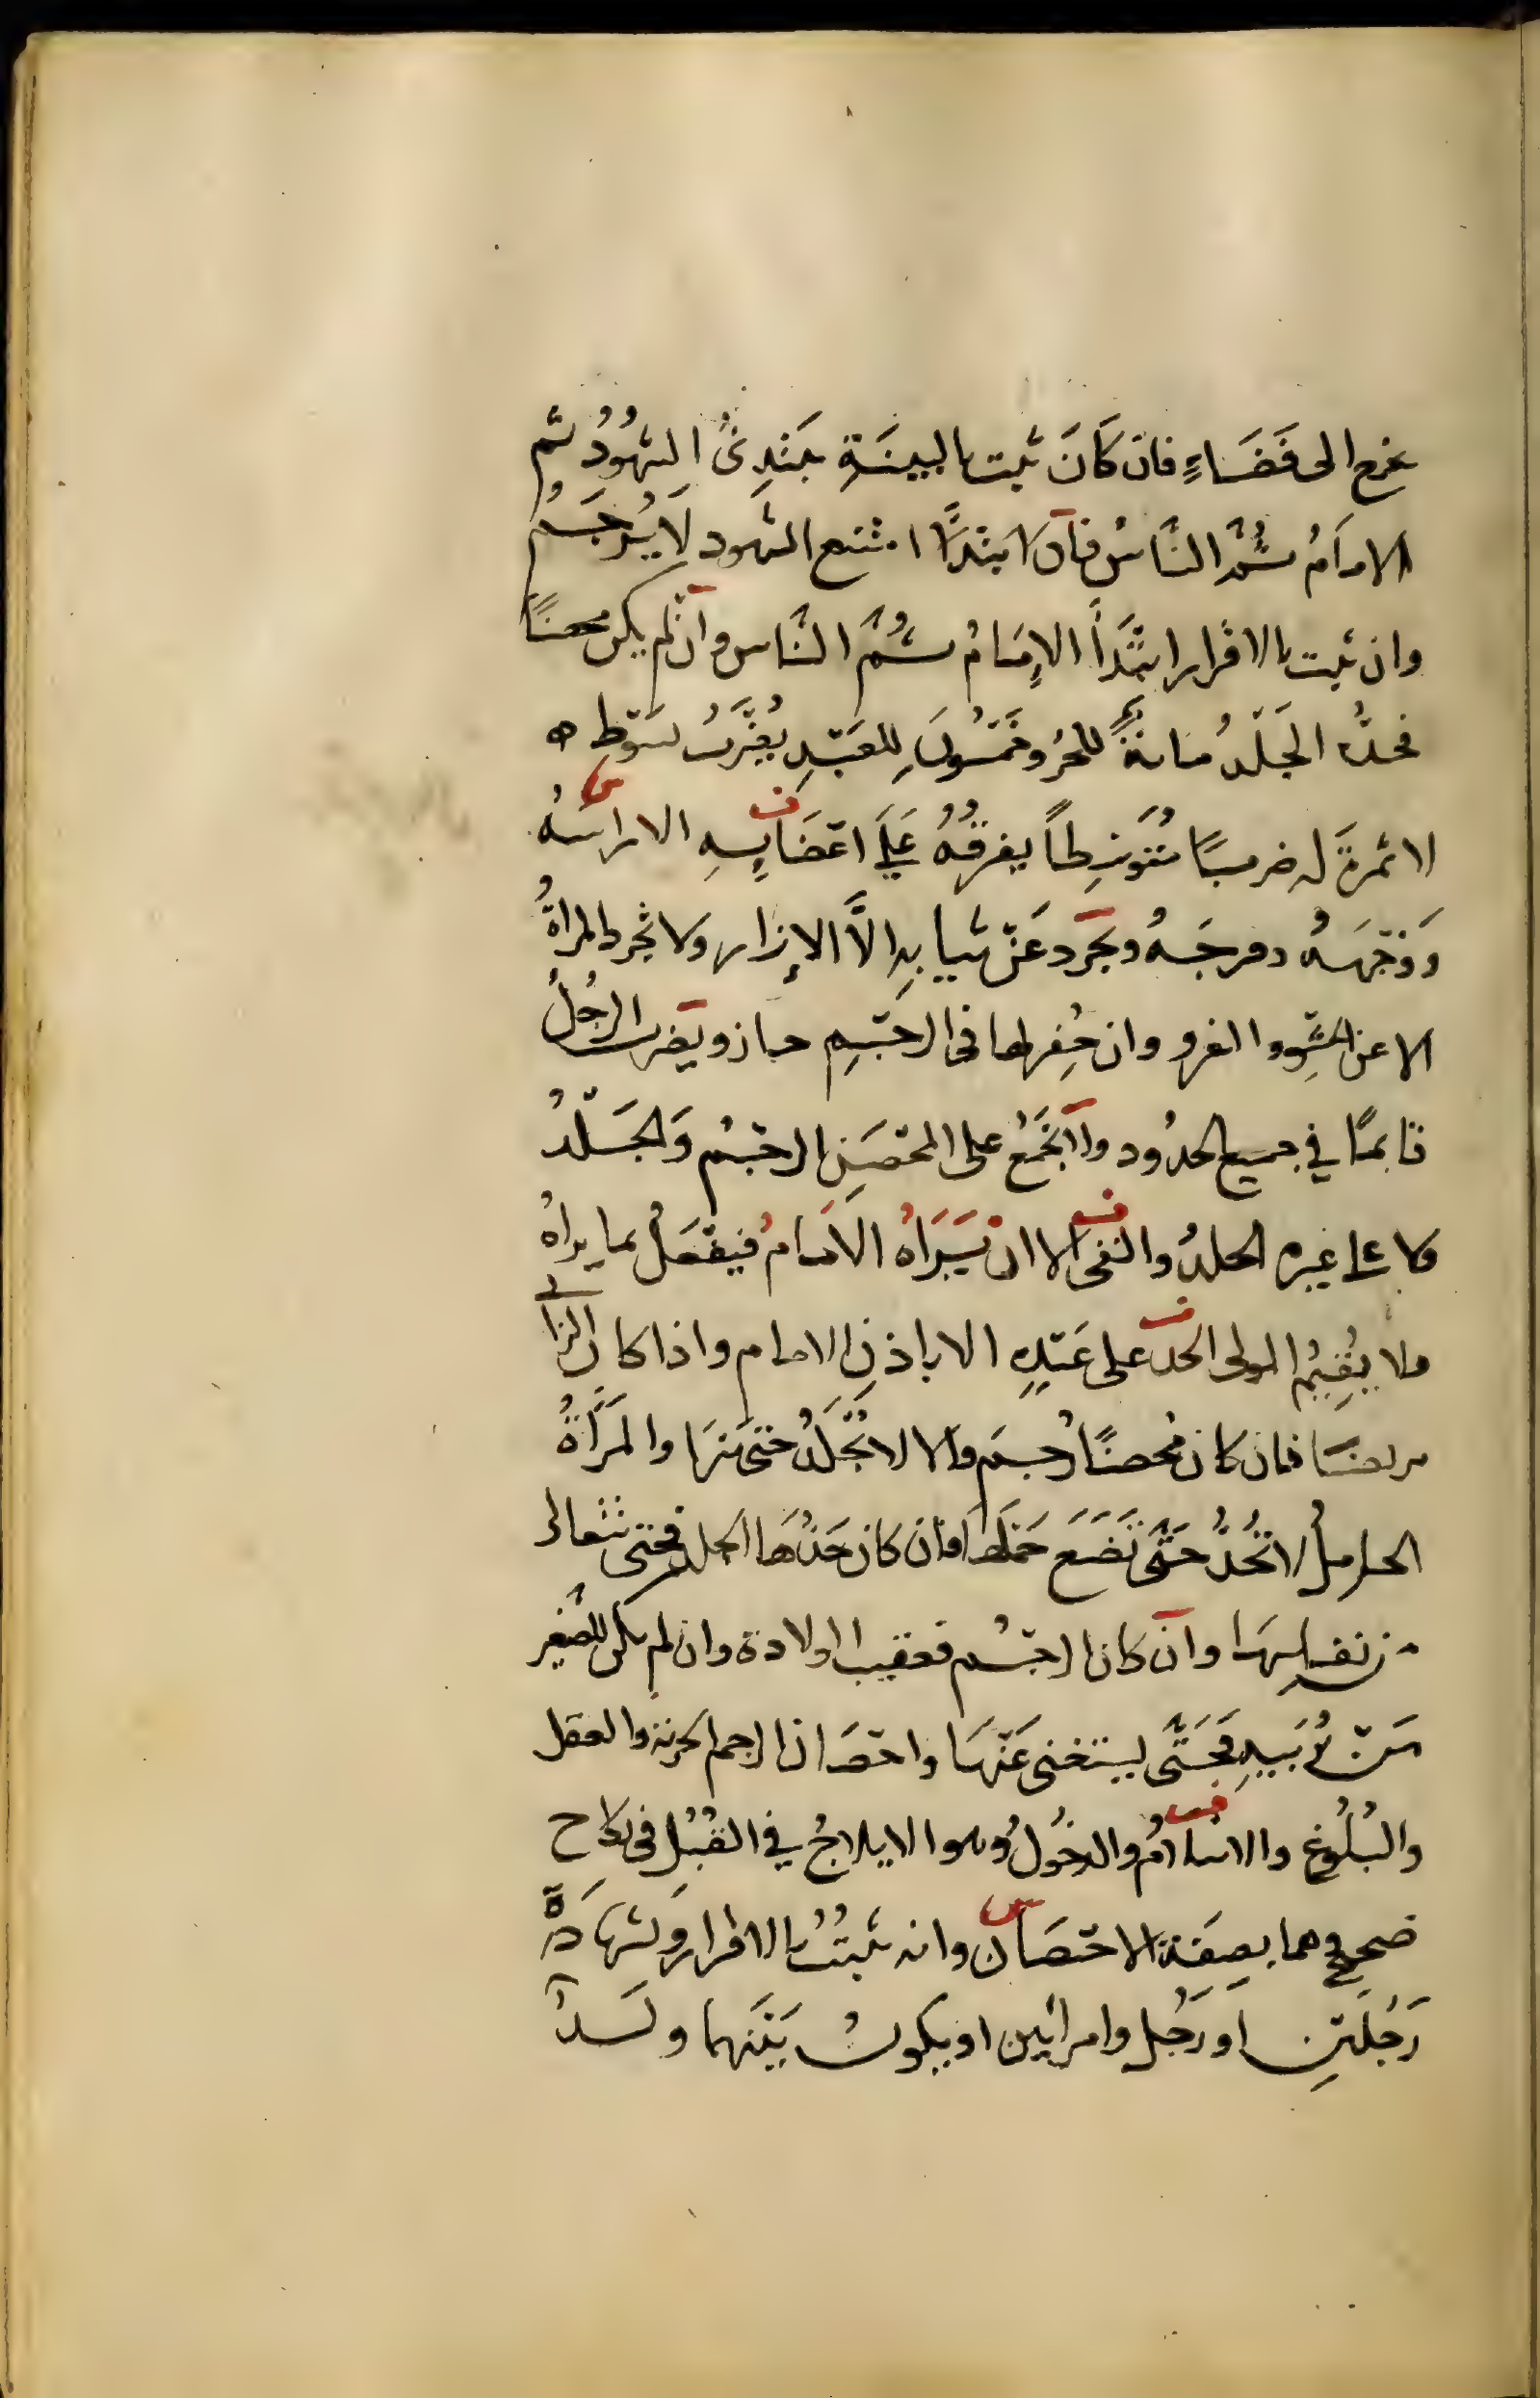 يخرج الى فَضَاءٍ فان كَانَ ثبت بالبينَةِ يبتدئُ الشهُودُ ثم
الامامُ ثُمَّ النَّاسُ فان ابتدأ امتنع الشهود لَا يُرجَمُ
وان ثبت بالاقرار ابتَدَأَ الإمَامُ ثُمَّ النَّاس وان لم يكن محصنًا
فحدُّه الجَلْدُ مائةٌ للحُرِّ وخَمْسُونَ للعَبْدِ يُضْرَبُ بسَوْطٍ
لا ثمرةَ له ضربًا مُتَوسِطاً يفرقُهُ عَلَى اعْضَايِهِ الا رأسَهُ
وَوَجْهَهُ وفرجَهُ ويجرد عَنْ ثيابِهِ الَّا الإزار ولا تجرد المراةُ
الا عن الحَشْوِ والفرو وان حُفِر لها فى الرجْمِ جاز ويضرب الرجُلُ
قائمًا في جميع الحدُود ولا يُجْمَعُ على المحْصَنِ الرجْمُ وَالجَلْدُ
ولا على غيره الجلدُ والنفى الا ان يَرَاهُ الامَامُ فيفْعَلُ بما يراهُ
ولا يُقِيْمُ المولى الحَدّ على عَبْدِهِ الا باذنِ الامام واذا كان الزانى
مريضًا فان كان مُحصنًا رُجِمَ والا لا يُجْلَدُ حتى يبرَا والمَرْأَةُ
الحاملُ لا تُحَدُّ حَتَّى تَضَعَ حَمْلَهَا فان كان حَدُّهَا الجلد فحتى تتعالى
من نفاسِهَا وان كان الرجْمُ فعقيب الولادة وان لم يكن للصغير
مَنْ يُرَبِيهِ فحَتَّى يستغنى عَنْهَا واحْصَان الرجم الحرية والعقل
والبُلُوغ والاسلامُ والدخُولُ وهو الايلاجُ في القُبُلِ فى نكاح
صحيح وهما بصِفَةِ الاحْصَان وانه يثبتُ بالاقرار وشهادَة
رَجُلَيْنِ او رَجُل وامراتين او يكون بَيْنَهما ولدٌ